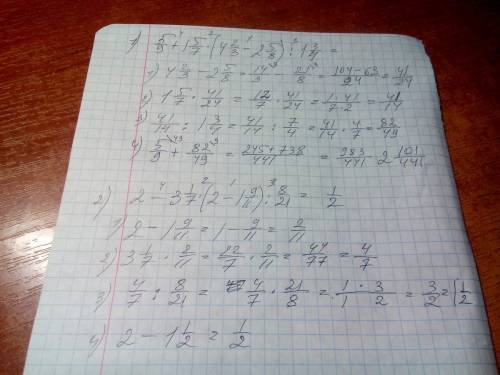 1) 5/9 + 1 5/7 · (4 2/3 − 2 5/8) : 1 3/4 =
1) 4 2/3 − 2 5/8 = 14/3 − 21/8 = 104−63/24 = 41/24
2) 1 5/7 · 41/24 = 12/7 · 41/24 = 1·41/7·2 = 41/14
3) 41/14 : 1 3/4 = 41/14 : 7/4 = 41/14 · 4/7 = 82/49
4) 5/9 + 82/49 = 245+738/441 = 983/441 2 101/441
2) 2 − 3 1/7 · (2 − 1 9/11) : 8/21 = 1/2
1) 2 − 1 9/11 = 1 − 9/11 = 2/11
2) 3 1/7 · 2/11 = 22/7 · 2/11 = 44/77 = 4/7
3) 4/7 : 8/21 = 4/7 · 21/8 = 1/1 · 3/2 = 3/2 = 1 1/2
4) 2 − 1 1/2 = 1/2